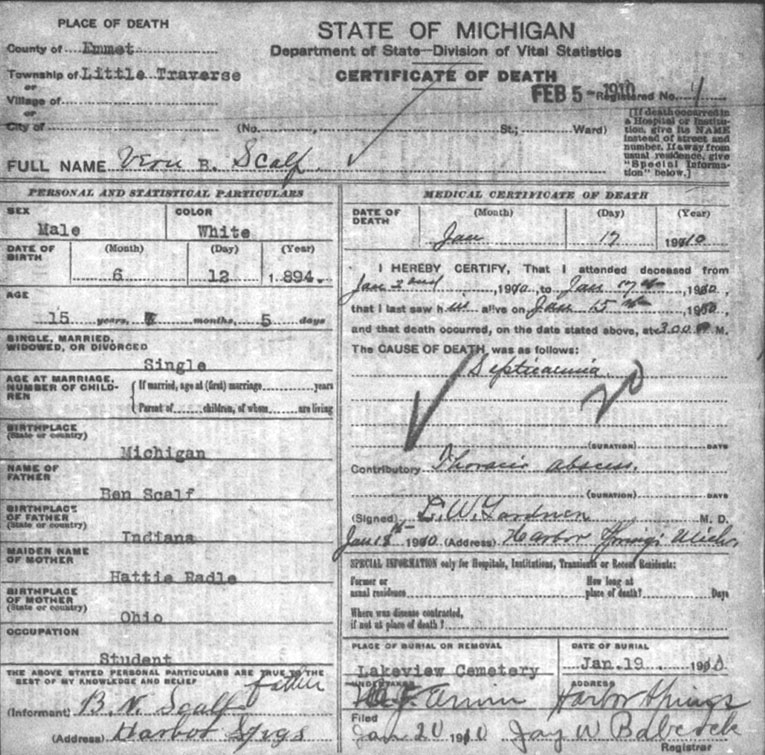 PLACE OF DEATH
County of Emmet
Township of Little Traverse
or
Village of
or
City of
STATE OF MICHIGAN
Department of State—Division of Vital Statistics
CERTIFICATE OF DEATH
FEB 5 - 1910 Registered No. 4
(No. , St.; Ward)
[If death occurred in a Hospital or Institution, give its NAME instead of street and number. If away from usual residence, give "Special Information" below.]
FULL NAME Vern B. Scalf
PERSONAL AND STATISTICAL PARTICULARS
SEX
Male
COLOR
White
DATE OF BIRTH
(Month) (Day) (Year)
6 12 1894
AGE
15 years, months, 5 days
SINGLE, MARRIED, WIDOWED, OR DIVORCED
Single
AGE AT MARRIAGE, NUMBER OF CHILDREN
If married, age at (first) marriage years
Parent of children, of whom are living
BIRTHPLACE
(State or country)
Michigan
NAME OF FATHER
Ben Scalf
BIRTHPLACE OF FATHER
(State or country)
Indiana
MAIDEN NAME OF MOTHER
Hattie Radle
BIRTHPLACE OF MOTHER
(State or country)
Ohio
OCCUPATION
Student
THE ABOVE STATED PERSONAL PARTICULARS ARE TRUE TO THE BEST OF MY KNOWLEDGE AND BELIEF
father
(Informant) B. N. Scalf
(Address) Harbor Spgs
MEDICAL CERTIFICATE OF DEATH
DATE OF DEATH
(Month) (Day) (Year)
Jan 17 1910
I HEREBY CERTIFY, That I attended deceased from
Jan 2nd, 1910, to Jan 17th, 1910,
that I last saw him alive on Jan 15th, 1910
and that death occurred, on the date stated above, at 3.00 M.
The CAUSE OF DEATH, was as follows:
Septicaemia
20
(DURATION) DAYS
Contributory Thoracic abscess.
(DURATION) DAYS
(Signed) C. W. Gardner M. D.
Jan 18th 1910 (Address) Harbor Springs Mich.
SPECIAL INFORMATION only for Hospitals, Institutions, Transients or Recent Residents:
Former or usual residence
How long at place of death? Days
Where was disease contracted, if not at place of death?
PLACE OF BURIAL OR REMOVAL
Lakeview Cemetery
DATE OF BURIAL
Jan. 19 1910
UNDERTAKER
ADDRESS
Harbor Springs
Filed
Jan 20 1910 Jay W Babcock
Registrar